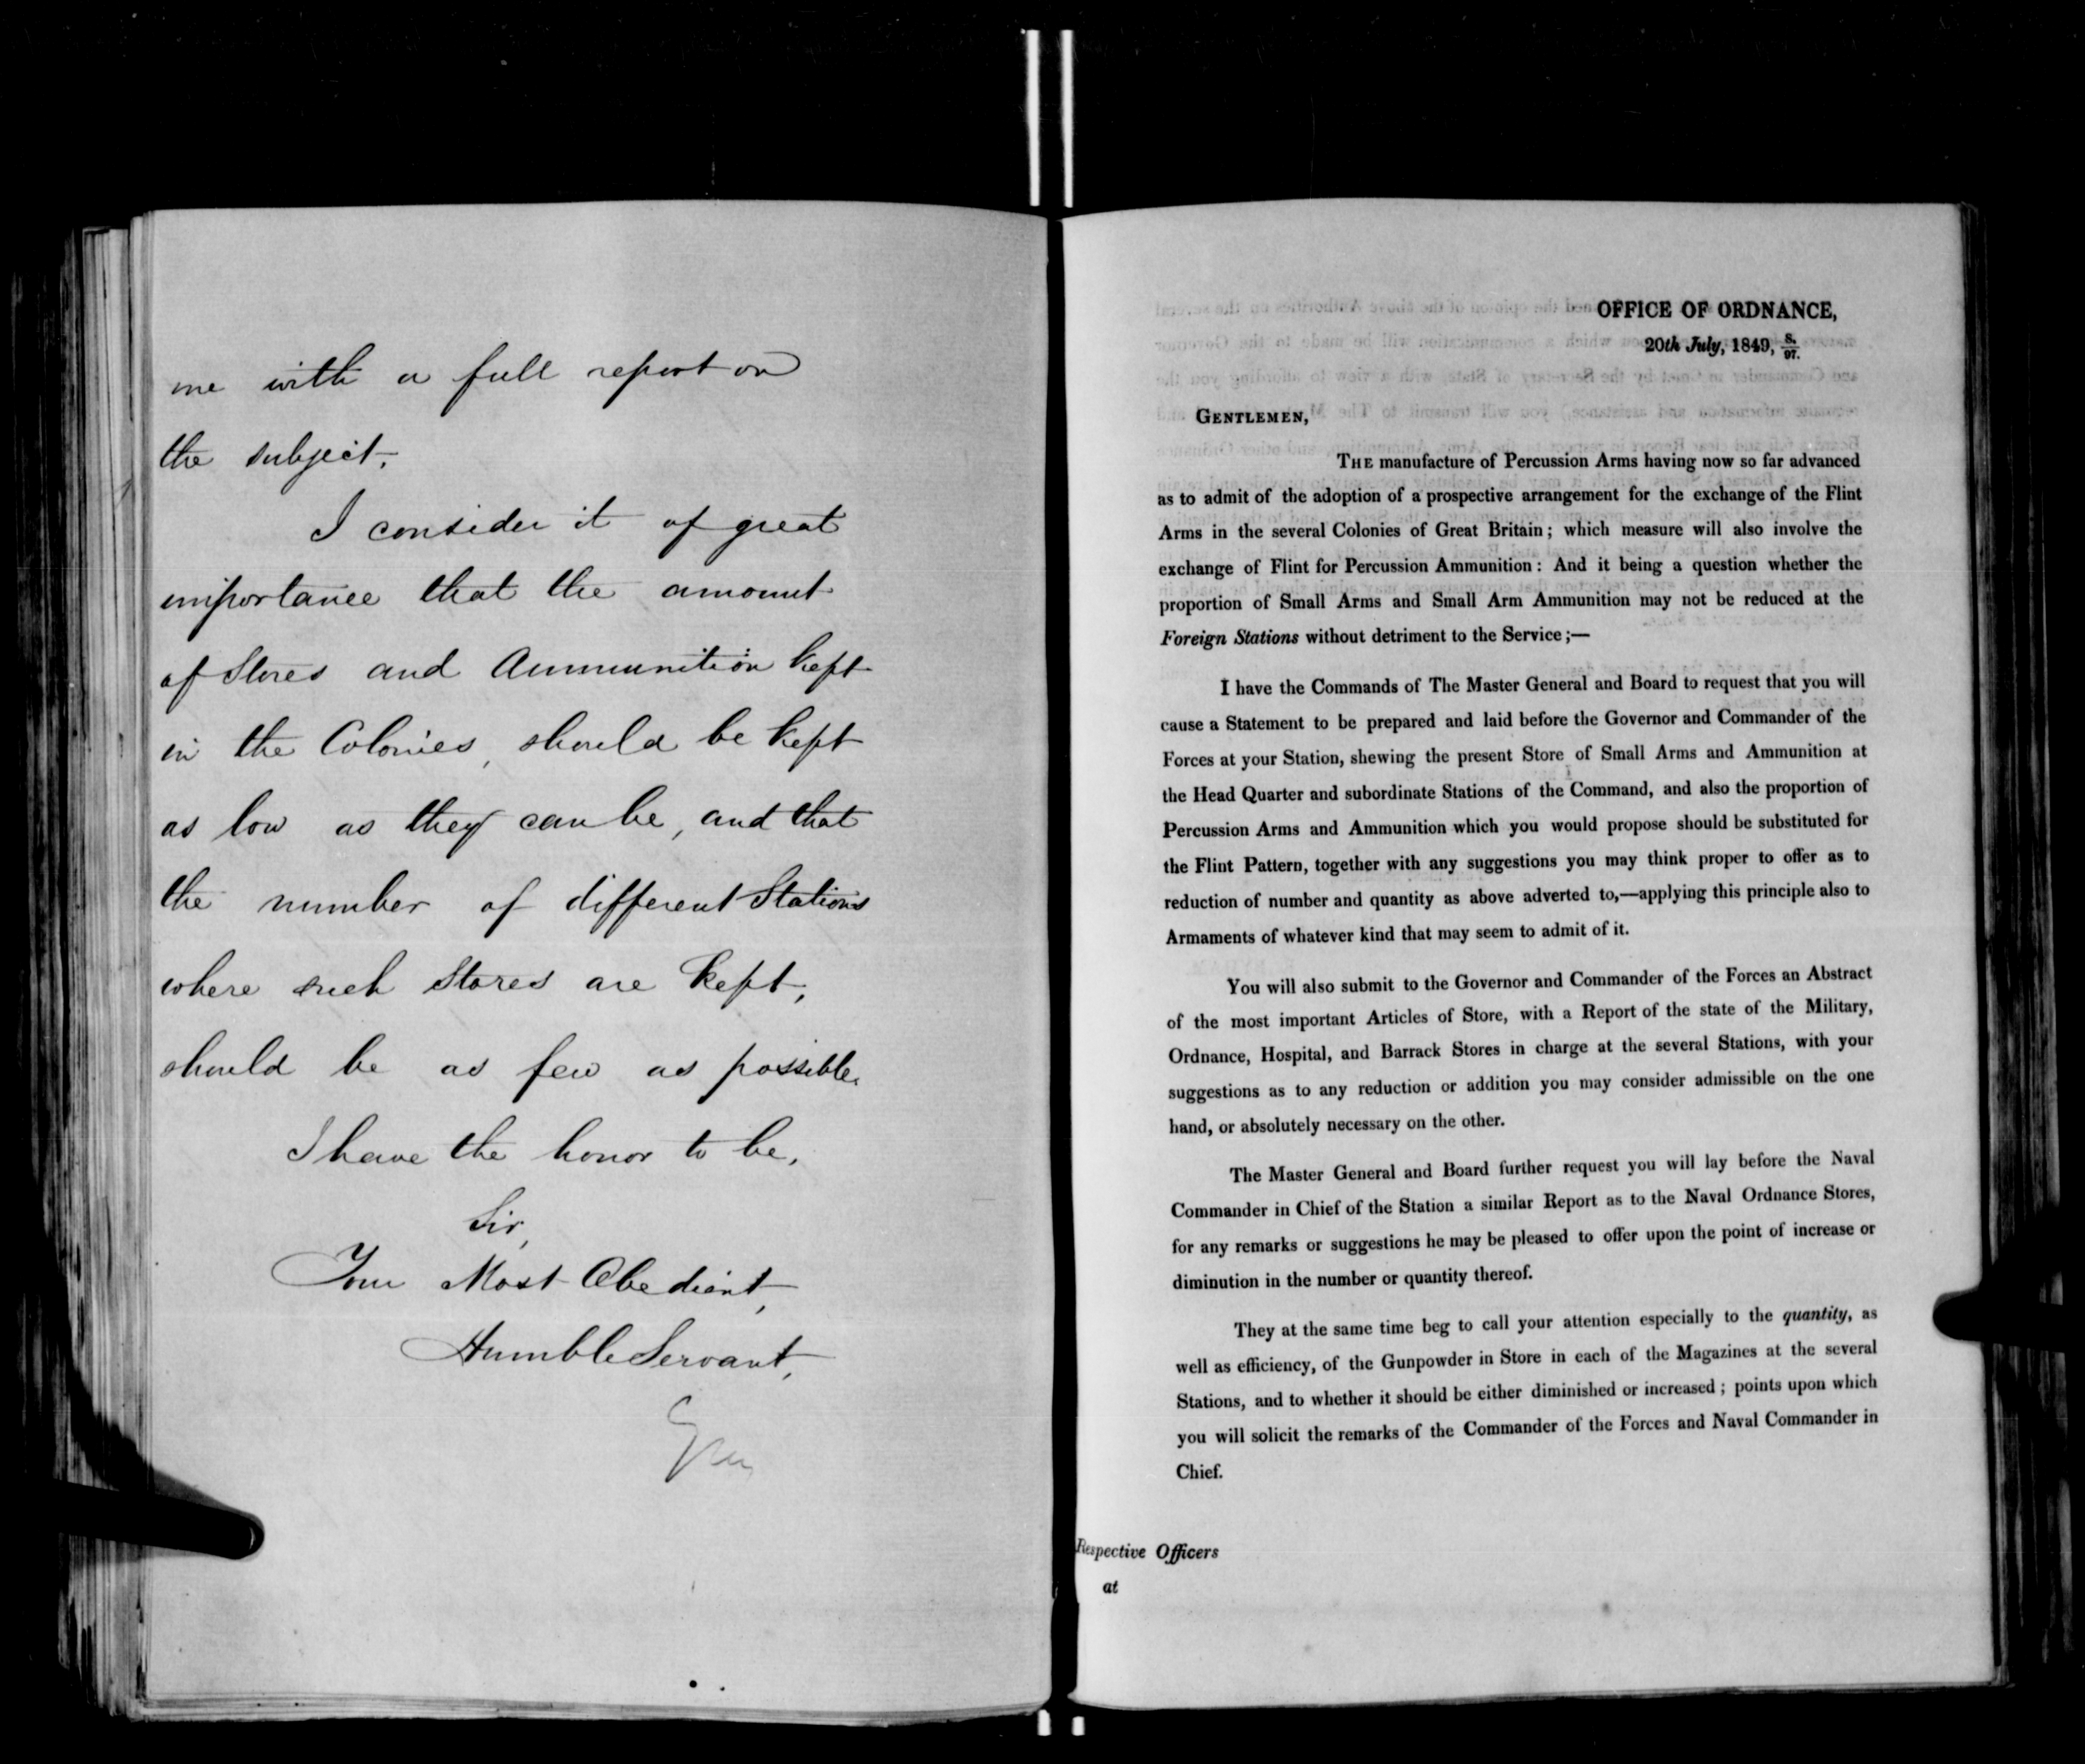 me with a full report on
the subject.
I consider it of great
importance that the amount
of Stores and Ammunition kept
in the Colonies, should be kept
as low as they can be, and that
the number of different Stations
where such Stores are kept,
should be as few as possible.
I have the honor to be,
Sir,
Your Most Obedient,
Humble Servant,
OFFICE OF ORDNANCE,
20th July, 1849, S./97.
GENTLEMEN,
THE manufacture of Percussion Arms having now so far advanced
as to admit of the adoption of a prospective arrangement for the exchange of the Flint
Arms in the several Colonies of Great Britain; which measure will also involve the
exchange of Flint for Percussion Ammunition: And it being a question whether the
proportion of Small Arms and Small Arm Ammunition may not be reduced at the
Foreign Stations without detriment to the Service;—
I have the Commands of The Master General and Board to request that you will
cause a Statement to be prepared and laid before the Governor and Commander of the
Forces at your Station, shewing the present Store of Small Arms and Ammunition at
the Head Quarter and subordinate Stations of the Command, and also the proportion of
Percussion Arms and Ammunition which you would propose should be substituted for
the Flint Pattern, together with any suggestions you may think proper to offer as to
reduction of number and quantity as above adverted to,—applying this principle also to
Armaments of whatever kind that may seem to admit of it.
You will also submit to the Governor and Commander of the Forces an Abstract
of the most important Articles of Store, with a Report of the state of the Military,
Ordnance, Hospital, and Barrack Stores in charge at the several Stations, with your
suggestions as to any reduction or addition you may consider admissible on the one
hand, or absolutely necessary on the other.
The Master General and Board further request you will lay before the Naval
Commander in Chief of the Station a similar Report as to the Naval Ordnance Stores,
for any remarks or suggestions he may be pleased to offer upon the point of increase or
diminution in the number or quantity thereof.
They at the same time beg to call your attention especially to the quantity, as
well as efficiency, of the Gunpowder in Store in each of the Magazines at the several
Stations, and to whether it should be either diminished or increased; points upon which
you will solicit the remarks of the Commander of the Forces and Naval Commander in
Chief.
Respective Officers
at